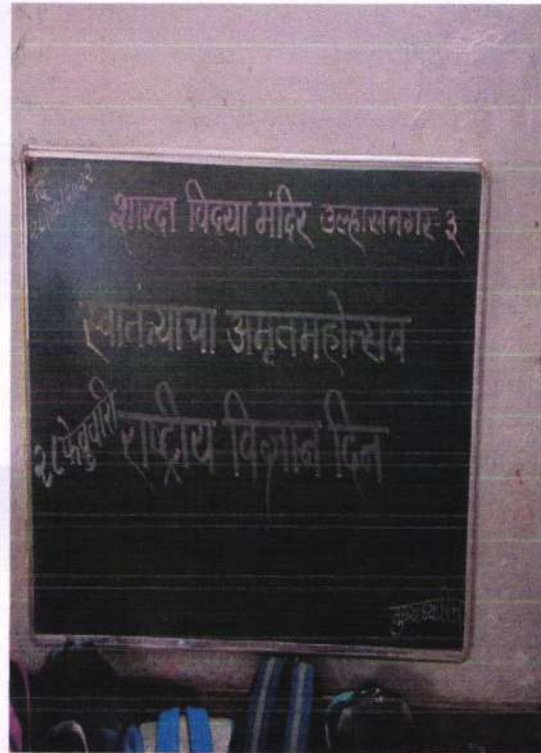 दि
शारदा विद्या मंदिर उल्हासनगर-३
स्वातंत्र्याचा अमृतमहोत्सव
२८ फेब्रुवारी राष्ट्रीय विज्ञान दिन